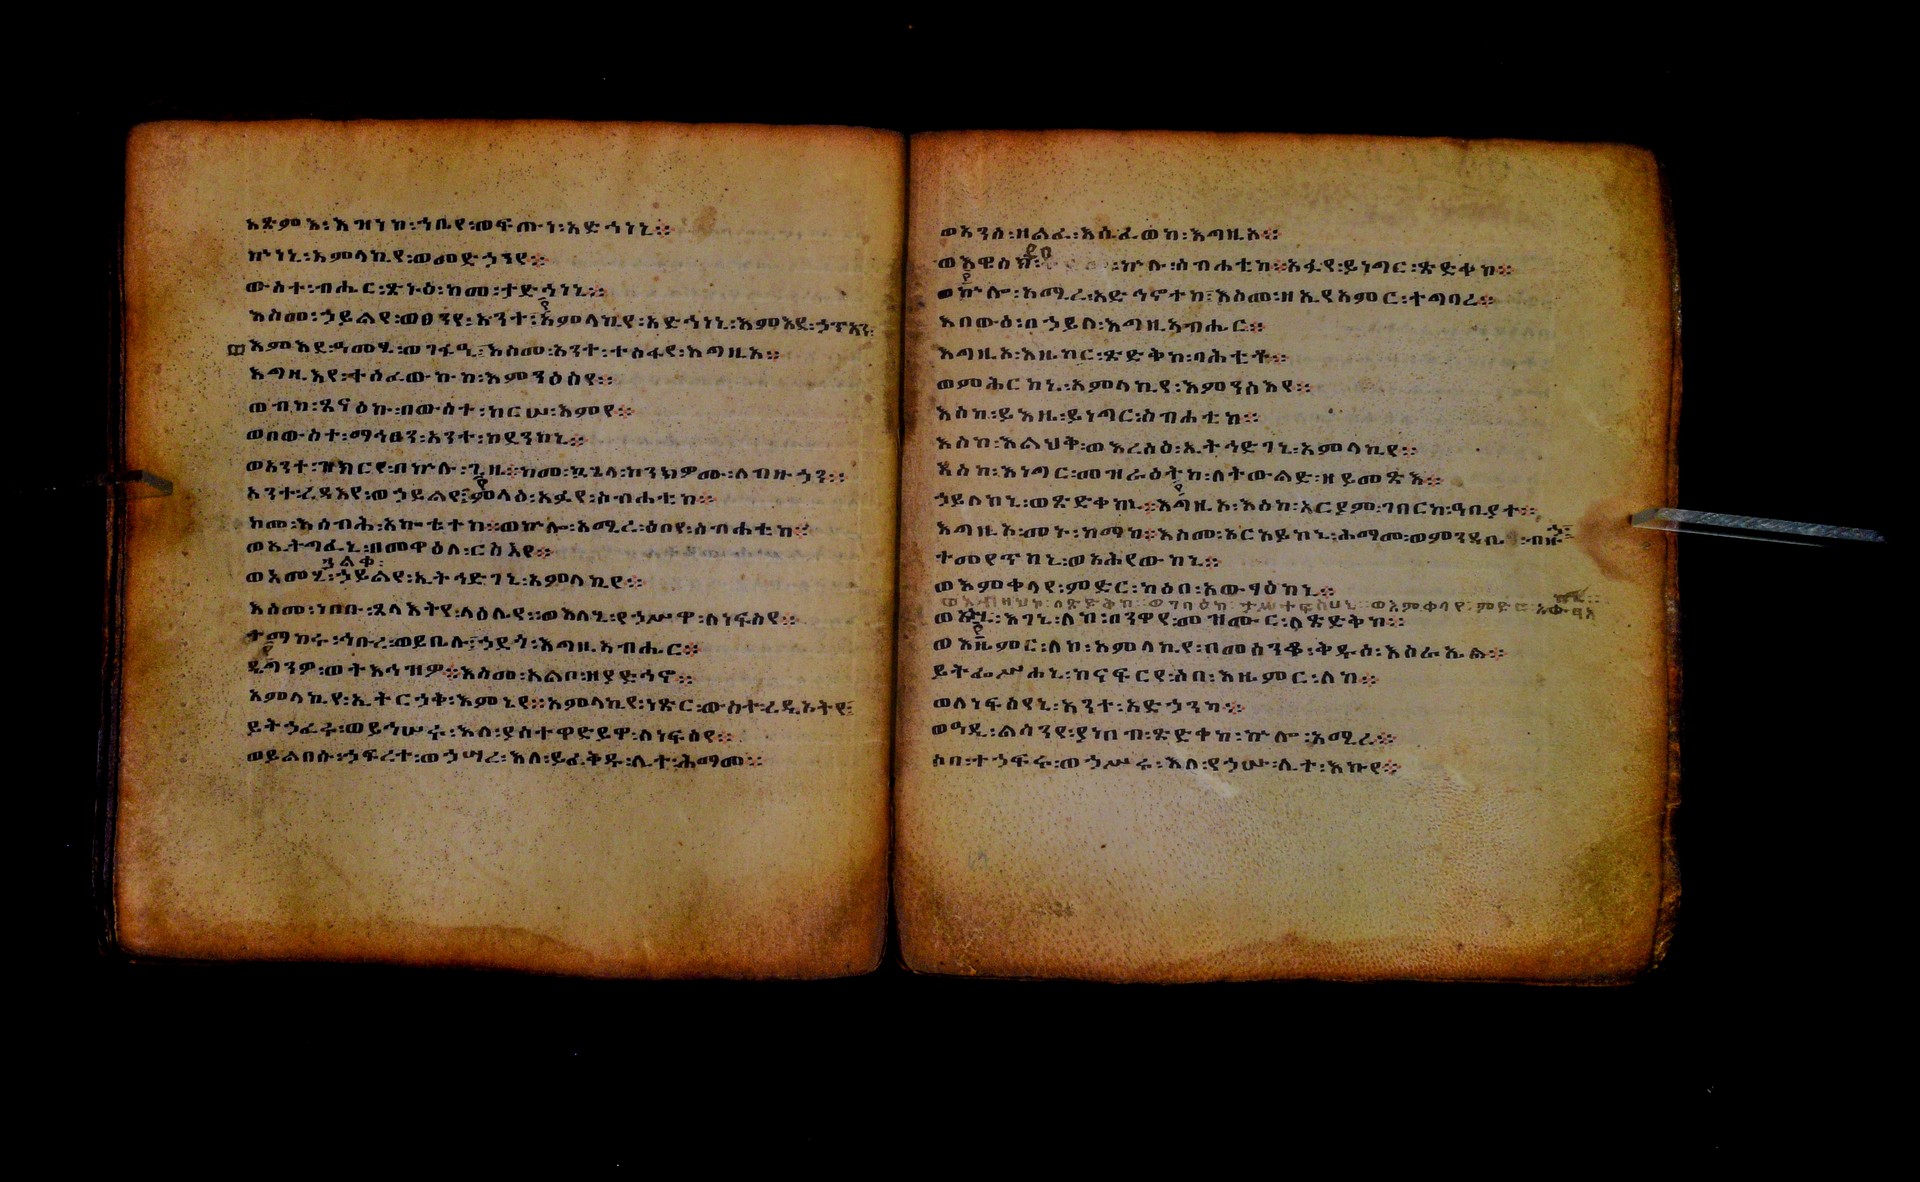 አጽምእ፡እዝነከ፡ኀቤየ፡ወፍጡነ፡አድኅነኒ።
ኩነኒ፡አምላኪየ፡ወመድኃንየ።
ውስተ፡ብሔር፡ጽኑዕ፡ከመ፡ታድኅነኒ።
እስመ፡ኃይልየ፡ወፀንየ፡አንተ፡አምላኪየ፡አድኅነኒ፡እምእደ፡ኃጥአን፡
እምእደ፡ዓመፂ፡ወገፋዒ፤እስመ፡አንተ፡ተስፋየ፡እግዚአ።
እግዚእየ፡ተሰፈውኩከ፡እምንዕስየ።
ወብከ፡ጸናዕኩ፡በውስተ፡ከርሡ፡እምየ።
ወበውስተ፡ማኅፀን፡አንተ፡ከደንከኒ።
ወአንተ፡ዝክርየ፡በኵሉ፡ጊዜ።ከመ፡ኳጊላ፡ከንክዎሙ፡ለብዙኃን።
አንተ፡ረዳእየ፡ወኃይልየ፤ምላዕ፡አፉየ፡ስብሐቲከ።
ከመ፡እሰብሕ፡አኰቴተከ።ወኵሎ፡አሚረ፡ዕበየ፡ስብሐቲከ።
ወኢትግፈኒ፡በመዋዕለ፡ርስእየ።
ንልቀ፡
ወአመ፡ኃይልየ፡ኢትኅድገኒ፡አምላኪየ።
እስመ፡ነበቡ፡ጸላእትየ፡ላዕሌየ።ወእለኒ፡የኃሥሥዋ፡ለነፍስየ።
ተማከሩ፡ኅቡረ፡ወይቤሉ፤ኃደጎ፡እግዚአብሔር።
ዴግንዎ፡ወትእኅዝዎ።እስመ፡አልቦ፡ዘያድኅኖ።
አምላኪየ፡ኢትርኃቅ፡እምኔየ።አምላኪየ፡ነጽር፡ውስተ፡ረዲኦትየ፤
ይትኃፈሩ፡ወይኀሠሩ፡እለ፡ያስተዋድይዋ፡ለነፍስየ።
ወይልበሱ፡ኃፍረተ፡ወኃሣረ፡እለ፡ይፈቅዱ፡ሊተ፡ሕማመ።
ወአንሰ፡ዘልፈ፡እሴፈወከ፡እግዚአ።
ወእዌስክ፡ኵሉ፡ስብሐቲከ።አፉየ፡ይነግር፡ጽድቀከ።
ወኵሎ፡አሚረ፡አድኅኖተከ፤እስመ፡ዘኢየአምር፡ተግባረ።
እበውዕ፡በኃይለ፡እግዚአብሔር።
እግዚኦ፡እዜከር፡ጽድቅከ፡ባሕቲቶ።
ወምሕርከኒ፡አምላኪየ፡እምንስእየ።
እስከ፡ይእዜ፡ይነግር፡ስብሐቲከ።
እስከ፡እልህቅ፡ወእረስዕ፡ኢትኅድገኒ፡አምላኪየ።
እስከ፡እነግር፡መዝራዕትከ፡ለትውልድ፡ዘይመጽእ።
ኃይለከኒ፡ወጽድቀከኒ።እግዚኦ፡እስከ፡አርያም፡ገበርከ፡ዓቢያተ።
እግዚኦ፡መኑ፡ከማከ።እስመ፡አርአይከኒ፡ሕማመ፡ወምንዳቤ፡
ተመየጥከኒ፡ወአሕየውከኒ።
ወእምቀላየ፡ምድር፡ካዕበ፡አውፃዕከኒ።
ወአብዛኅኮ፡ለጽድቅከ፡ወገባዕከ፡
ወአነኒ፡እገኒ፡ለከ፡በንዋየ፡መዝሙር፡ለጽድቅከ።
ወእዜምር፡ለከ፡አምላኪየ፡በመሰንቆ፡ቅዱሰ፡እስራኤል።
ይትፌሥሐኒ፡ከናፍርየ፡ሶበ፡እዜምር፡ለከ።
ወለነፍስየኒ፡አንተ፡አድኃንካ።
ወዓዲ፡ልሳንየ፡ያነብብ፡ጽድቀከ፡ኵሎ፡አሚረ።
ሶበ፡ተኃፍሩ፡ወኃሥሩ፡እለ፡የኃሡ፡ሊተ፡እኩየ።